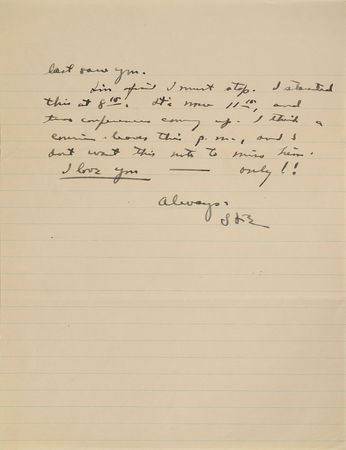 last saw you.
I'm afraid I must stop. I started
this at 8¹⁵. It's now 11¹⁵, and
two conferences coming up. I think a
courier leaves this p.m., and I
don't want this note to miss him.
I love you — only!!
Always,